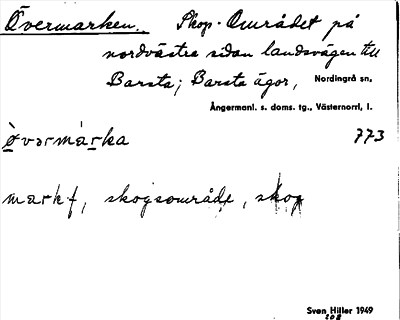 Övermarken. Skog. Området på
nordvästra sidan landsvägen till
Barsta; Barsta ägor, Nordingrå sn,
Ångermanl. s. doms. tg., Västernorrl. l.
øvərmárka 773
markf, skogsområde, skog
Sven Hiller 1949